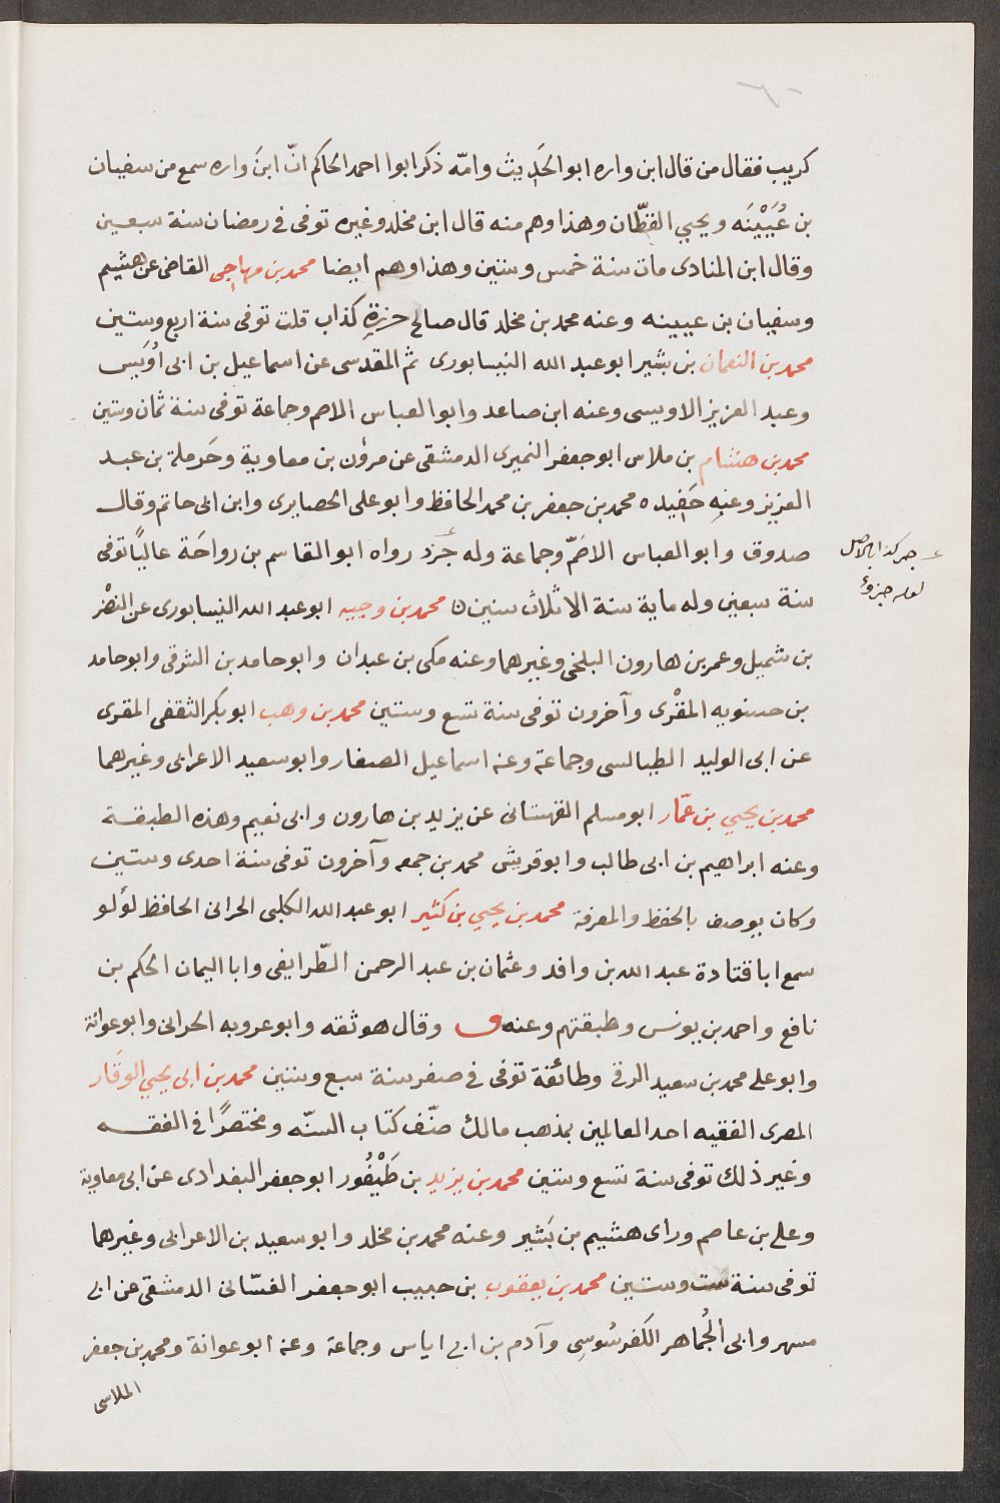 كريب فقال من قال ابن واره ابو الحَدِيث وامّه ذكر ابوا احمد الحاكم انّ ابنَ واره سمع من سفيان
بن عُيَيْنَه ويحيي القطّان وهذا وهم منه قال ابن مخلد وغيره توفى في رمضان سنة سبعين
وقال ابن المنادى مات سنة خمس وستين وهذا وهم ايضا محمد بن مهاجى القاضى عن هشيم
وسفيان بن عيينه وعنه محمد بن مخلد قال صالح جزرة كذاب قلت توفى سنة اربع وستين
محمد بن النعمان بن بشير ابو عبد الله النيسابورى ثم المقدسى عن اسماعيل بن ابى أُوَيس
وعبد العزيز الاويسى وعنه ابن صاعد وابو العباس الاصم وجماعة توفى سنة ثمان وستين
محمد بن هشام بن ملاس ابو جعفر النميرى الدمشقى عن مروٰن بن معاوية وحَرملة بن عبد
العزيز وعنهِ حَفِيده محمد بن جعفر بن محمد الحافظ وابو على الحصايرى وابن ابى حاتم وقال
صدوق وابو العباس الاصَمّ وجماعة وله جَزد رواه ابو القاسم بن رواحَة عاليًا توفى
سنة سبعين وله ماية سنة الا ثلاث سنين محمد بن وجيه ابو عبد الله النيسابورى عن النضْر
بن شميل وعمر بن هارون البلخى وغيرهما وعنه مكى بن عبدان وابو حامد بن الشرقى وابو حامد
بن حسنويه المقْرى وآخرون توفى سنة تسع وستين محمد بن وهب ابو بكر الثقفى المقرى
عن ابى الوليد الطيالسى وجماعة وعنه اسماعيل الصفار وابو سعيد الاعرابى وغيرهما
محمد بن يحيي بن عمّار ابو مسلم القهستانى عن يزيد بن هارون وابى نعيم وهذه الطبقة
وعنه ابراهيم بن ابى طالب وابو قريش محمد بن جمعه وآخرون توفى سنة احدى وستين
وكان يوصف بالحفظ والمعرفة محمد بن يحيي بن كثير ابو عبد الله الكلبى الحرانى الحافظ لؤلو
سمع ابا قتادة عبد الله بن واقد وعثمان بن عبد الرحمن الطّرايفى وابا اليمان الحكم بن
نافع واحمد بن يونس وطبقتهم وعنه وقال هو ثقه وابو عروبه الحرانى وابو عوانة
وابو على محمد بن سعيد الرقى وطائفة توفى في صفر سنة سبع وستين محمد بن ابى يحيي الوقَار
المصرى الفقيه احد العالمين بمذهب مالك صنّف كتاب السنّه ومختصرًا في الفقه
وغير ذلك توفى سنة تسع وستين محمد بن يزيد بن طَيْفُور ابو جعفر البغدادى عن ابى معاوية
وعلى بن عاصم وراى هشيم بن بَشير وعنه محمد بن مخلد وابو سعيد بن الاعرابى وغيرهما
توفى سنة ست وستين محمد بن يعقوب بن حبيب ابو جعفر الغسّانى الدمشقى عن ابى
مسهر وابى الجُماهر الكفرسُوسِى وآدم بن ابى اياس وجماعة وعنه ابو عوانة ومحمد بن جعفر
الملاسى
كذا بالاصل
لعله جزؤ